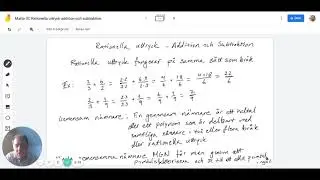 Matte 3C Rationella uttryck addition och subtraktion
Rationella uttryck - Addition och Subtraktion
Rationella uttryck fungerar på samma sätt som bråk
Ex: 2/3 + 6/2 = 2·2/3·2 + 6·3/2·3 = 4/6 + 18/6 = 4+18/6 = 22/6
2/3 + 1/9 = 2·3/3·3 + 1/9 = 6/9 + 1/9 = 7/9
Gemensam nämnare: En gemensam nämnare är ett heltal
eller ett polynom som är delbart med
samtliga nämnare i två eller flera bråk
eller rationella uttryck
gemensamma nämnare MGN får man genom att